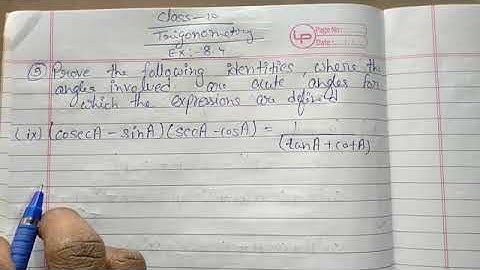 Class-10
Trigonometry
Ex:-8.4
LP
Page No:
Date:
⑤ Prove the following identities, where the
angles involved are acute angles for
which the expressions are defined
(ix) (cosecA - sinA) (secA - cosA) = 1/(tanA + cotA)